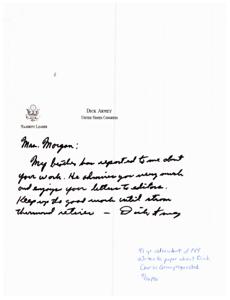 DICK ARMEY
UNITED STATES CONGRESS
MAJORITY LEADER
Mrs. Morgan:
My brother has reported to me about
your work. He admires you very much
and enjoys your letters to editors.
Keep up the good work until Strom
Thurmond retires — Dick Armey
91 yr
Writes to paper about Dick